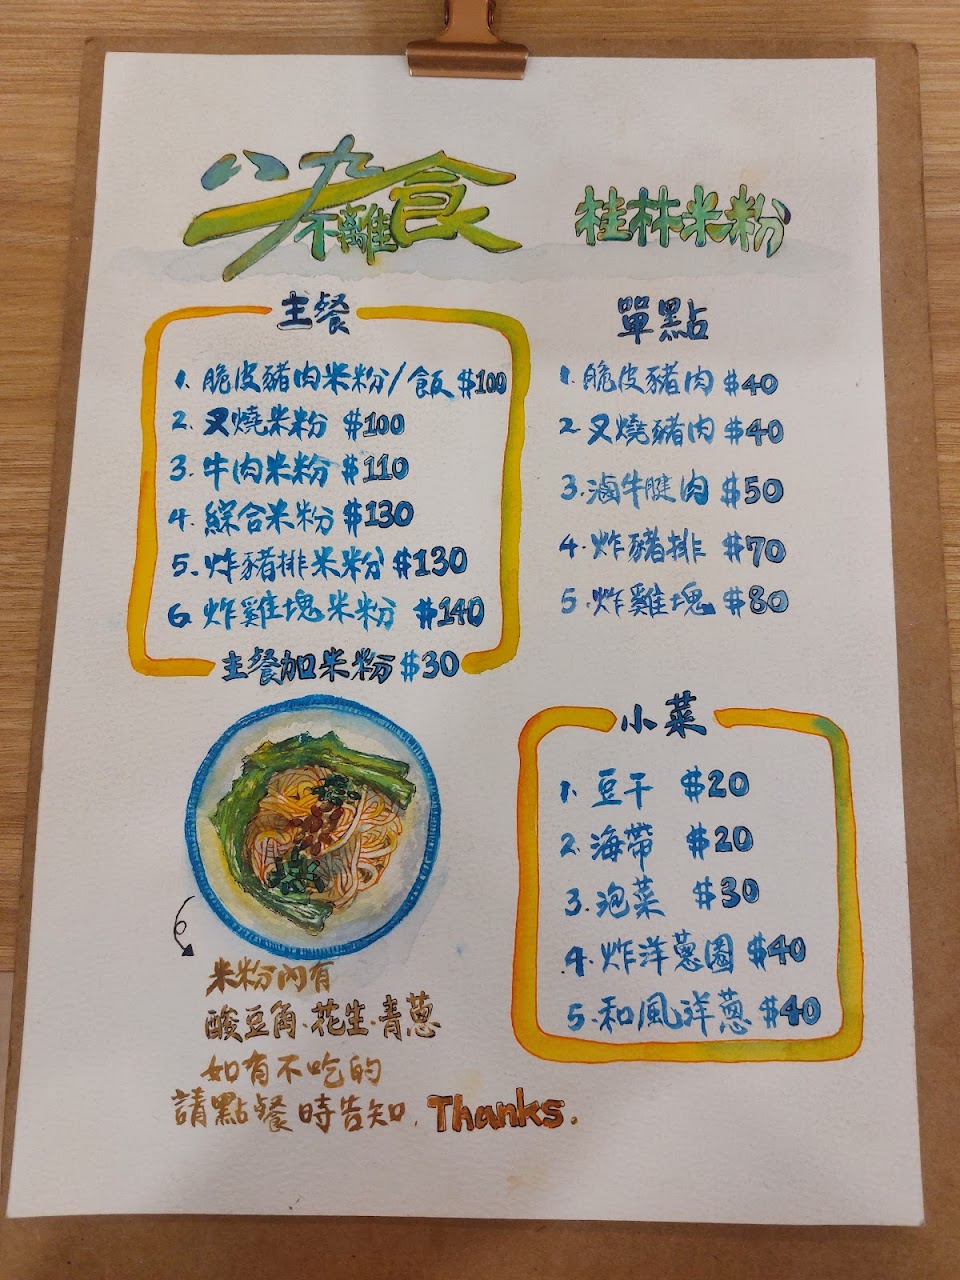 八九不離食
桂林米粉
主餐
1. 脆皮豬肉米粉/飯 $100
2. 叉燒米粉 $100
3. 牛肉米粉 $110
4. 綜合米粉 $130
5. 炸豬排米粉 $130
6. 炸雞塊米粉 $140
主餐加米粉 $30
單點
1. 脆皮豬肉 $40
2. 叉燒豬肉 $40
3. 滷牛腱肉 $50
4. 炸豬排 $70
5. 炸雞塊 $80
小菜
1. 豆干 $20
2. 海帶 $20
3. 泡菜 $30
4. 炸洋蔥圈 $40
5. 和風洋蔥 $40
米粉內有
酸豆角.花生.青蔥
如有不吃的
請點餐時告知. Thanks.